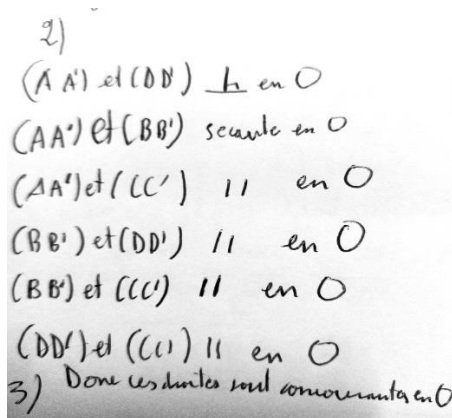 2)
(AA') et (DD') ⊥ en O
(AA') et (BB') secante en O
(AA') et (CC') // en O
(BB') et (DD') // en O
(BB') et (CC') // en O
(DD') et (CC') // en O
3) Donc ces droites sont concourantes en O